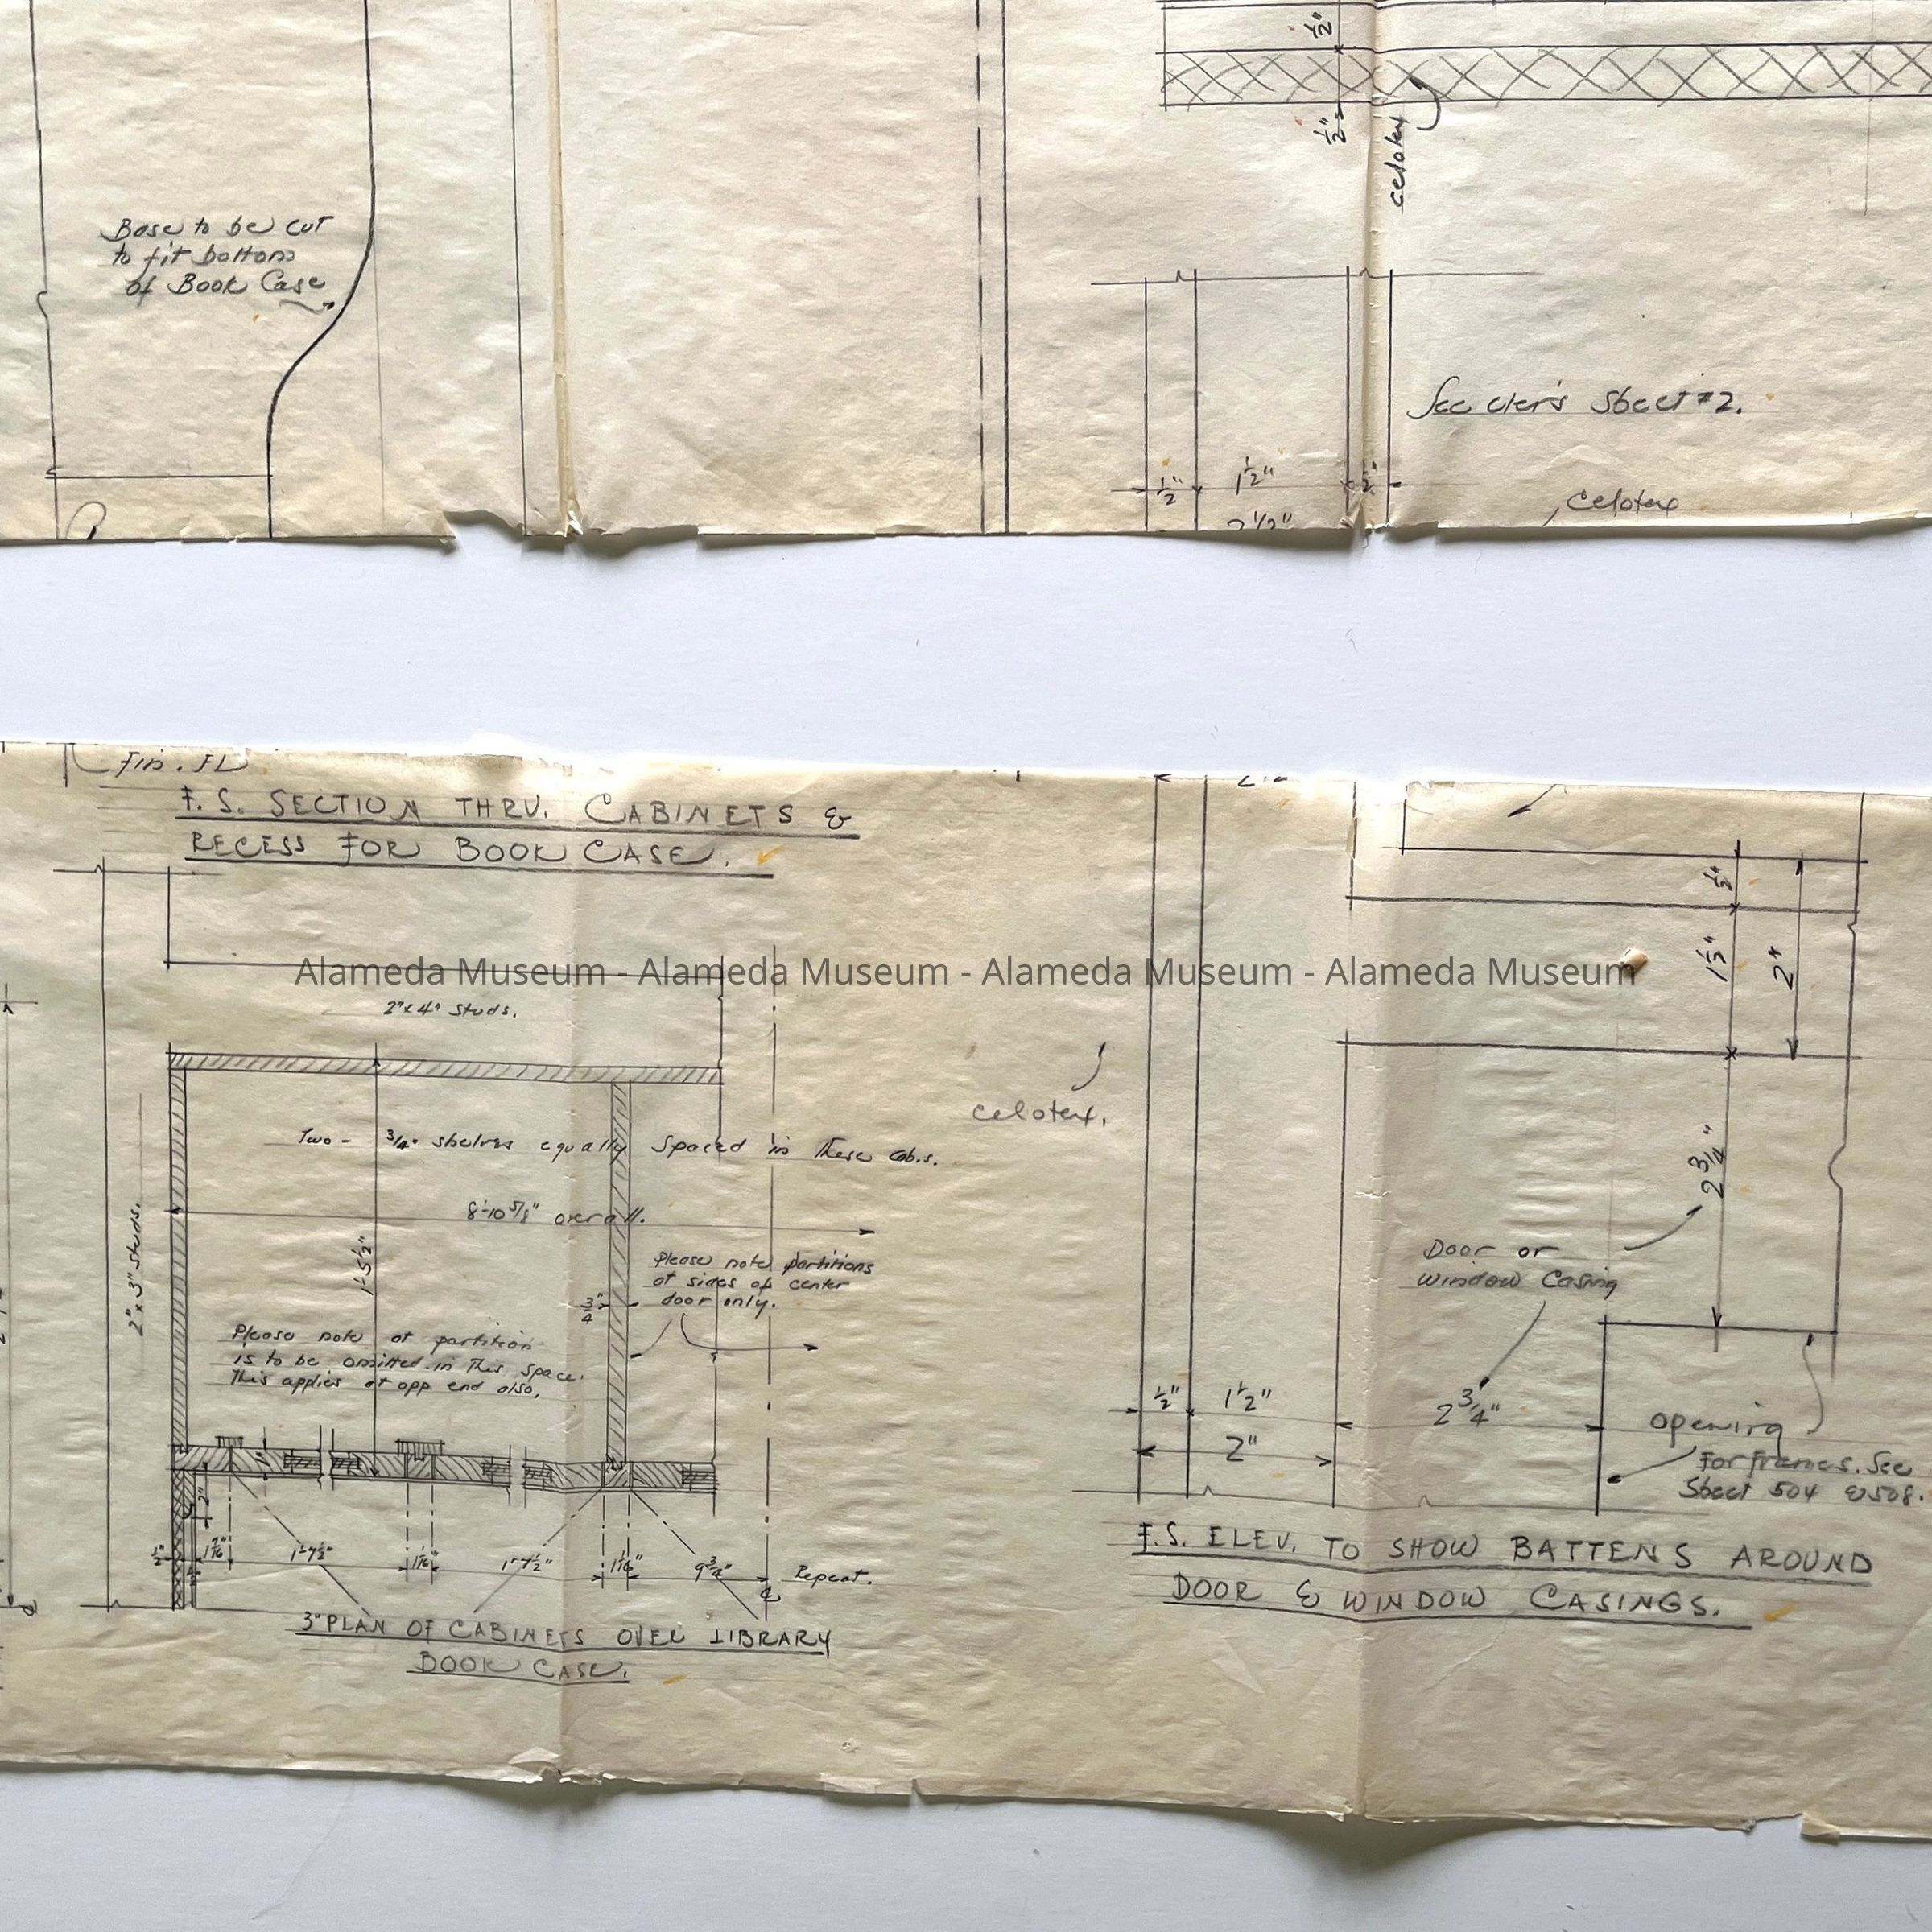 1/2"
1/2"
celotex
Base to be cut
to fit bottom
of Book Case
See also Sheet #2.
1/2" 1 1/2" 1/2"
2 1/2"
celotex
Fin. FL
F. S. SECTION THRU. CABINETS &
RECESS FOR BOOK CASE.
1/2"
1 1/2"
2"
Alameda Museum - Alameda Museum - Alameda Museum - Alameda Museum
2"x4" studs.
celotex.
Two - 3/4" shelves equally spaced in these cabs.
2 3/4"
8'-10 5/8" overall.
2"x3" studs.
1'-5 1/2"
Please note partitions
at sides of center
door only.
3/4"
Door or
Window Casing
Please note at partition
is to be omitted in this space.
This applies at opp end also.
1/2" 1 1/2"
2 3/4"
2"
Opening
For frames. See
Sheet 504 & 508.
2"
1/2" 1'-7 1/2" 1 1/16" 1'-7 1/2" 1 1/16" 9 3/4" Repeat.
F.S. ELEV. TO SHOW BATTENS AROUND
DOOR & WINDOW CASINGS.
3" PLAN OF CABINETS OVER LIBRARY
BOOK CASE.